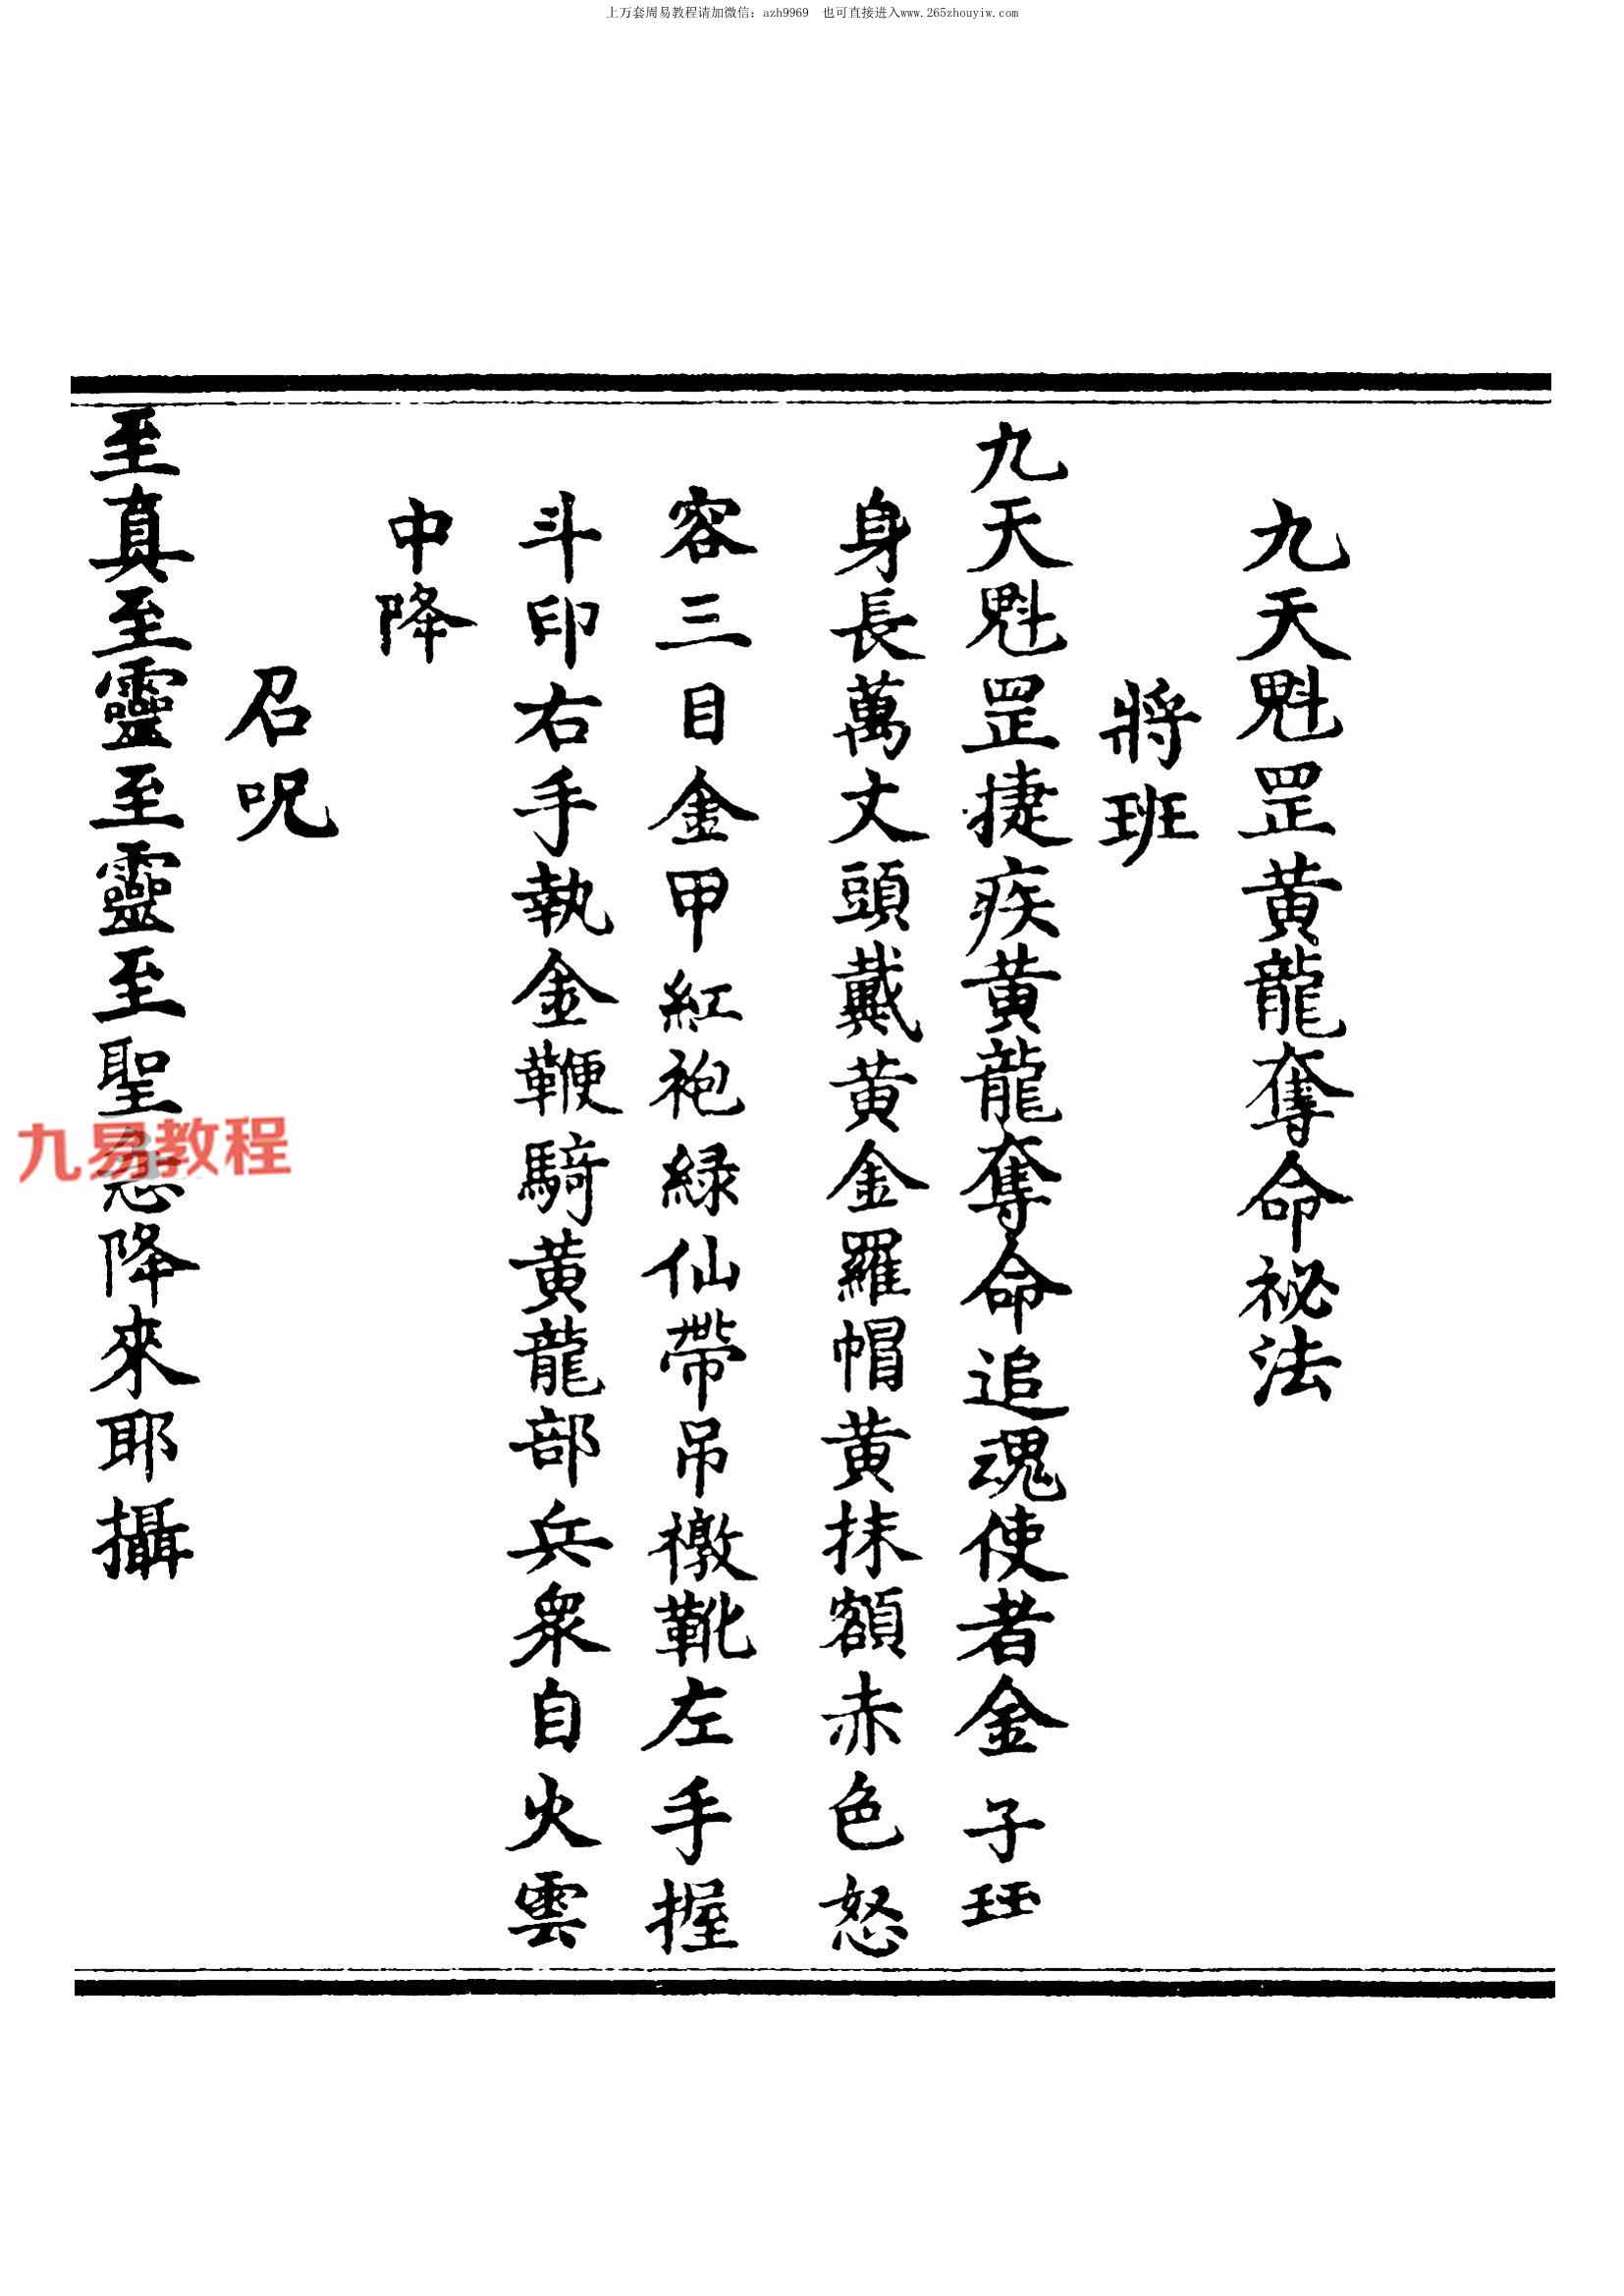 上万套周易教程请加微信：azh9969 也可直接进入www.265zhouyiw.com
九天魁罡黄龍奪命祕法
將班
九天魁罡捷疾黄龍奪命追魂使者金子玨
身長萬丈頭戴黄金羅帽黄抹額赤色怒
容三目金甲紅袍緑仙帶吊檄靴左手握
斗印右手執金鞭騎黄龍部兵衆自火雲
中降
召呪
至真至靈至靈至聖急降來耶攝
九易教程